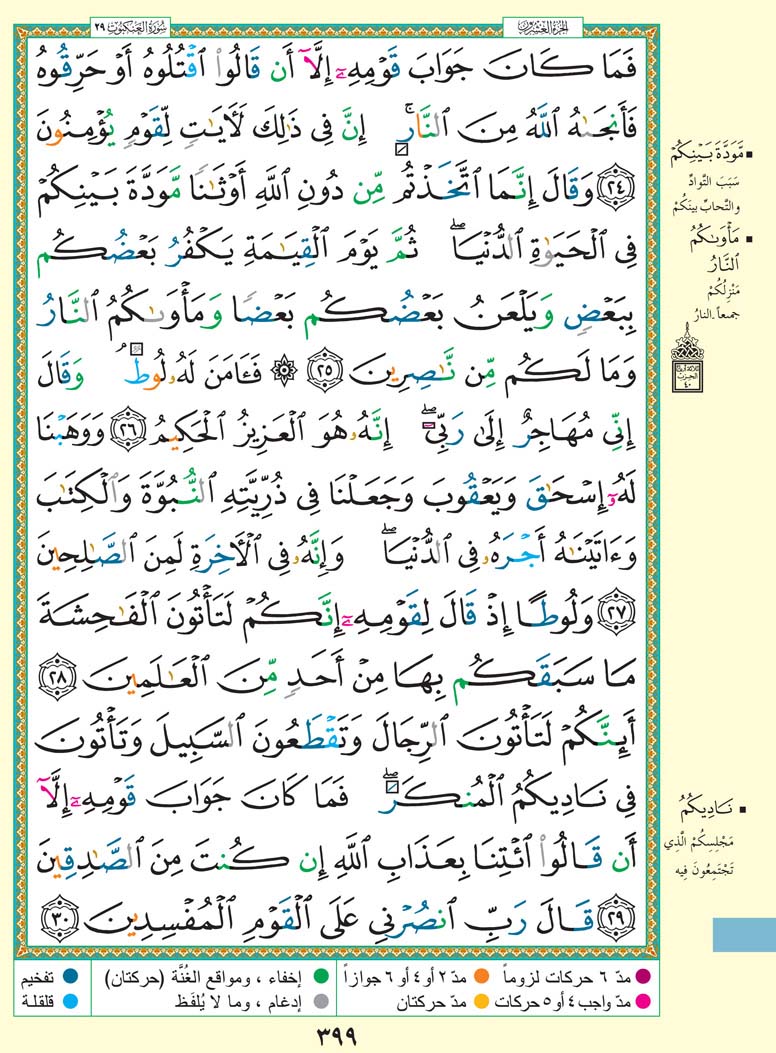 الجزء العشرون
سورة العنكبوت ٢٩
فَمَا كَانَ جَوَابَ قَوْمِهِۦٓ إِلَّآ أَن قَالُوا۟ ٱقْتُلُوهُ أَوْ حَرِّقُوهُ
فَأَنجَىٰهُ ٱللَّهُ مِنَ ٱلنَّارِ ۚ إِنَّ فِى ذَٰلِكَ لَءَايَٰتٍ لِّقَوْمٍ يُؤْمِنُونَ
٢٤ وَقَالَ إِنَّمَا ٱتَّخَذْتُم مِّن دُونِ ٱللَّهِ أَوْثَٰنًا مَّوَدَّةَ بَيْنِكُمْ
فِى ٱلْحَيَوٰةِ ٱلدُّنْيَا ۖ ثُمَّ يَوْمَ ٱلْقِيَٰمَةِ يَكْفُرُ بَعْضُكُم
بِبَعْضٍ وَيَلْعَنُ بَعْضُكُم بَعْضًا وَمَأْوَىٰكُمُ ٱلنَّارُ
وَمَا لَكُم مِّن نَّٰصِرِينَ ٢٥ ۞ فَـَٔامَنَ لَهُۥ لُوطٌ ۘ وَقَالَ
إِنِّى مُهَاجِرٌ إِلَىٰ رَبِّىٓ ۖ إِنَّهُۥ هُوَ ٱلْعَزِيزُ ٱلْحَكِيمُ ٢٦ وَوَهَبْنَا
لَهُۥٓ إِسْحَٰقَ وَيَعْقُوبَ وَجَعَلْنَا فِى ذُرِّيَّتِهِ ٱلنُّبُوَّةَ وَٱلْكِتَٰبَ
وَءَاتَيْنَٰهُ أَجْرَهُۥ فِى ٱلدُّنْيَا ۖ وَإِنَّهُۥ فِى ٱلْءَاخِرَةِ لَمِنَ ٱلصَّٰلِحِينَ
٢٧ وَلُوطًا إِذْ قَالَ لِقَوْمِهِۦٓ إِنَّكُمْ لَتَأْتُونَ ٱلْفَٰحِشَةَ
مَا سَبَقَكُم بِهَا مِنْ أَحَدٍ مِّنَ ٱلْعَٰلَمِينَ ٢٨
أَئِنَّكُمْ لَتَأْتُونَ ٱلرِّجَالَ وَتَقْطَعُونَ ٱلسَّبِيلَ وَتَأْتُونَ
فِى نَادِيكُمُ ٱلْمُنكَرَ ۖ فَمَا كَانَ جَوَابَ قَوْمِهِۦٓ إِلَّآ
أَن قَالُوا۟ ٱئْتِنَا بِعَذَابِ ٱللَّهِ إِن كُنتَ مِنَ ٱلصَّٰدِقِينَ
٢٩ قَالَ رَبِّ ٱنصُرْنِى عَلَى ٱلْقَوْمِ ٱلْمُفْسِدِينَ ٣٠
▪ مَّوَدَّةَ بَيْنِكُمْ
سَبَبَ التَّوادِّ
والتَّحابِّ بينَكُمْ
▪ مَأْوَىٰكُمُ
ٱلنَّارُ
مَنْزِلُكُمْ
جميعاً النارُ
ثلاثة أرباع
الحزب
٤٠
▪ نَادِيكُمُ
مَجْلِسِكُمْ الَّذِي
تَجْتَمِعُونَ فِيه
مدّ ٦ حركات لزوماً ● مدّ ٢ أو ٤ أو ٦ جوازاً ● إخفاء ، ومواقع الغُنَّة (حركتان) ● تفخيم
مدّ واجب ٤ أو ٥ حركات ● مدّ حركتان ● إدغام ، وما لا يُلفَظ ● قلقلة
٣٩٩